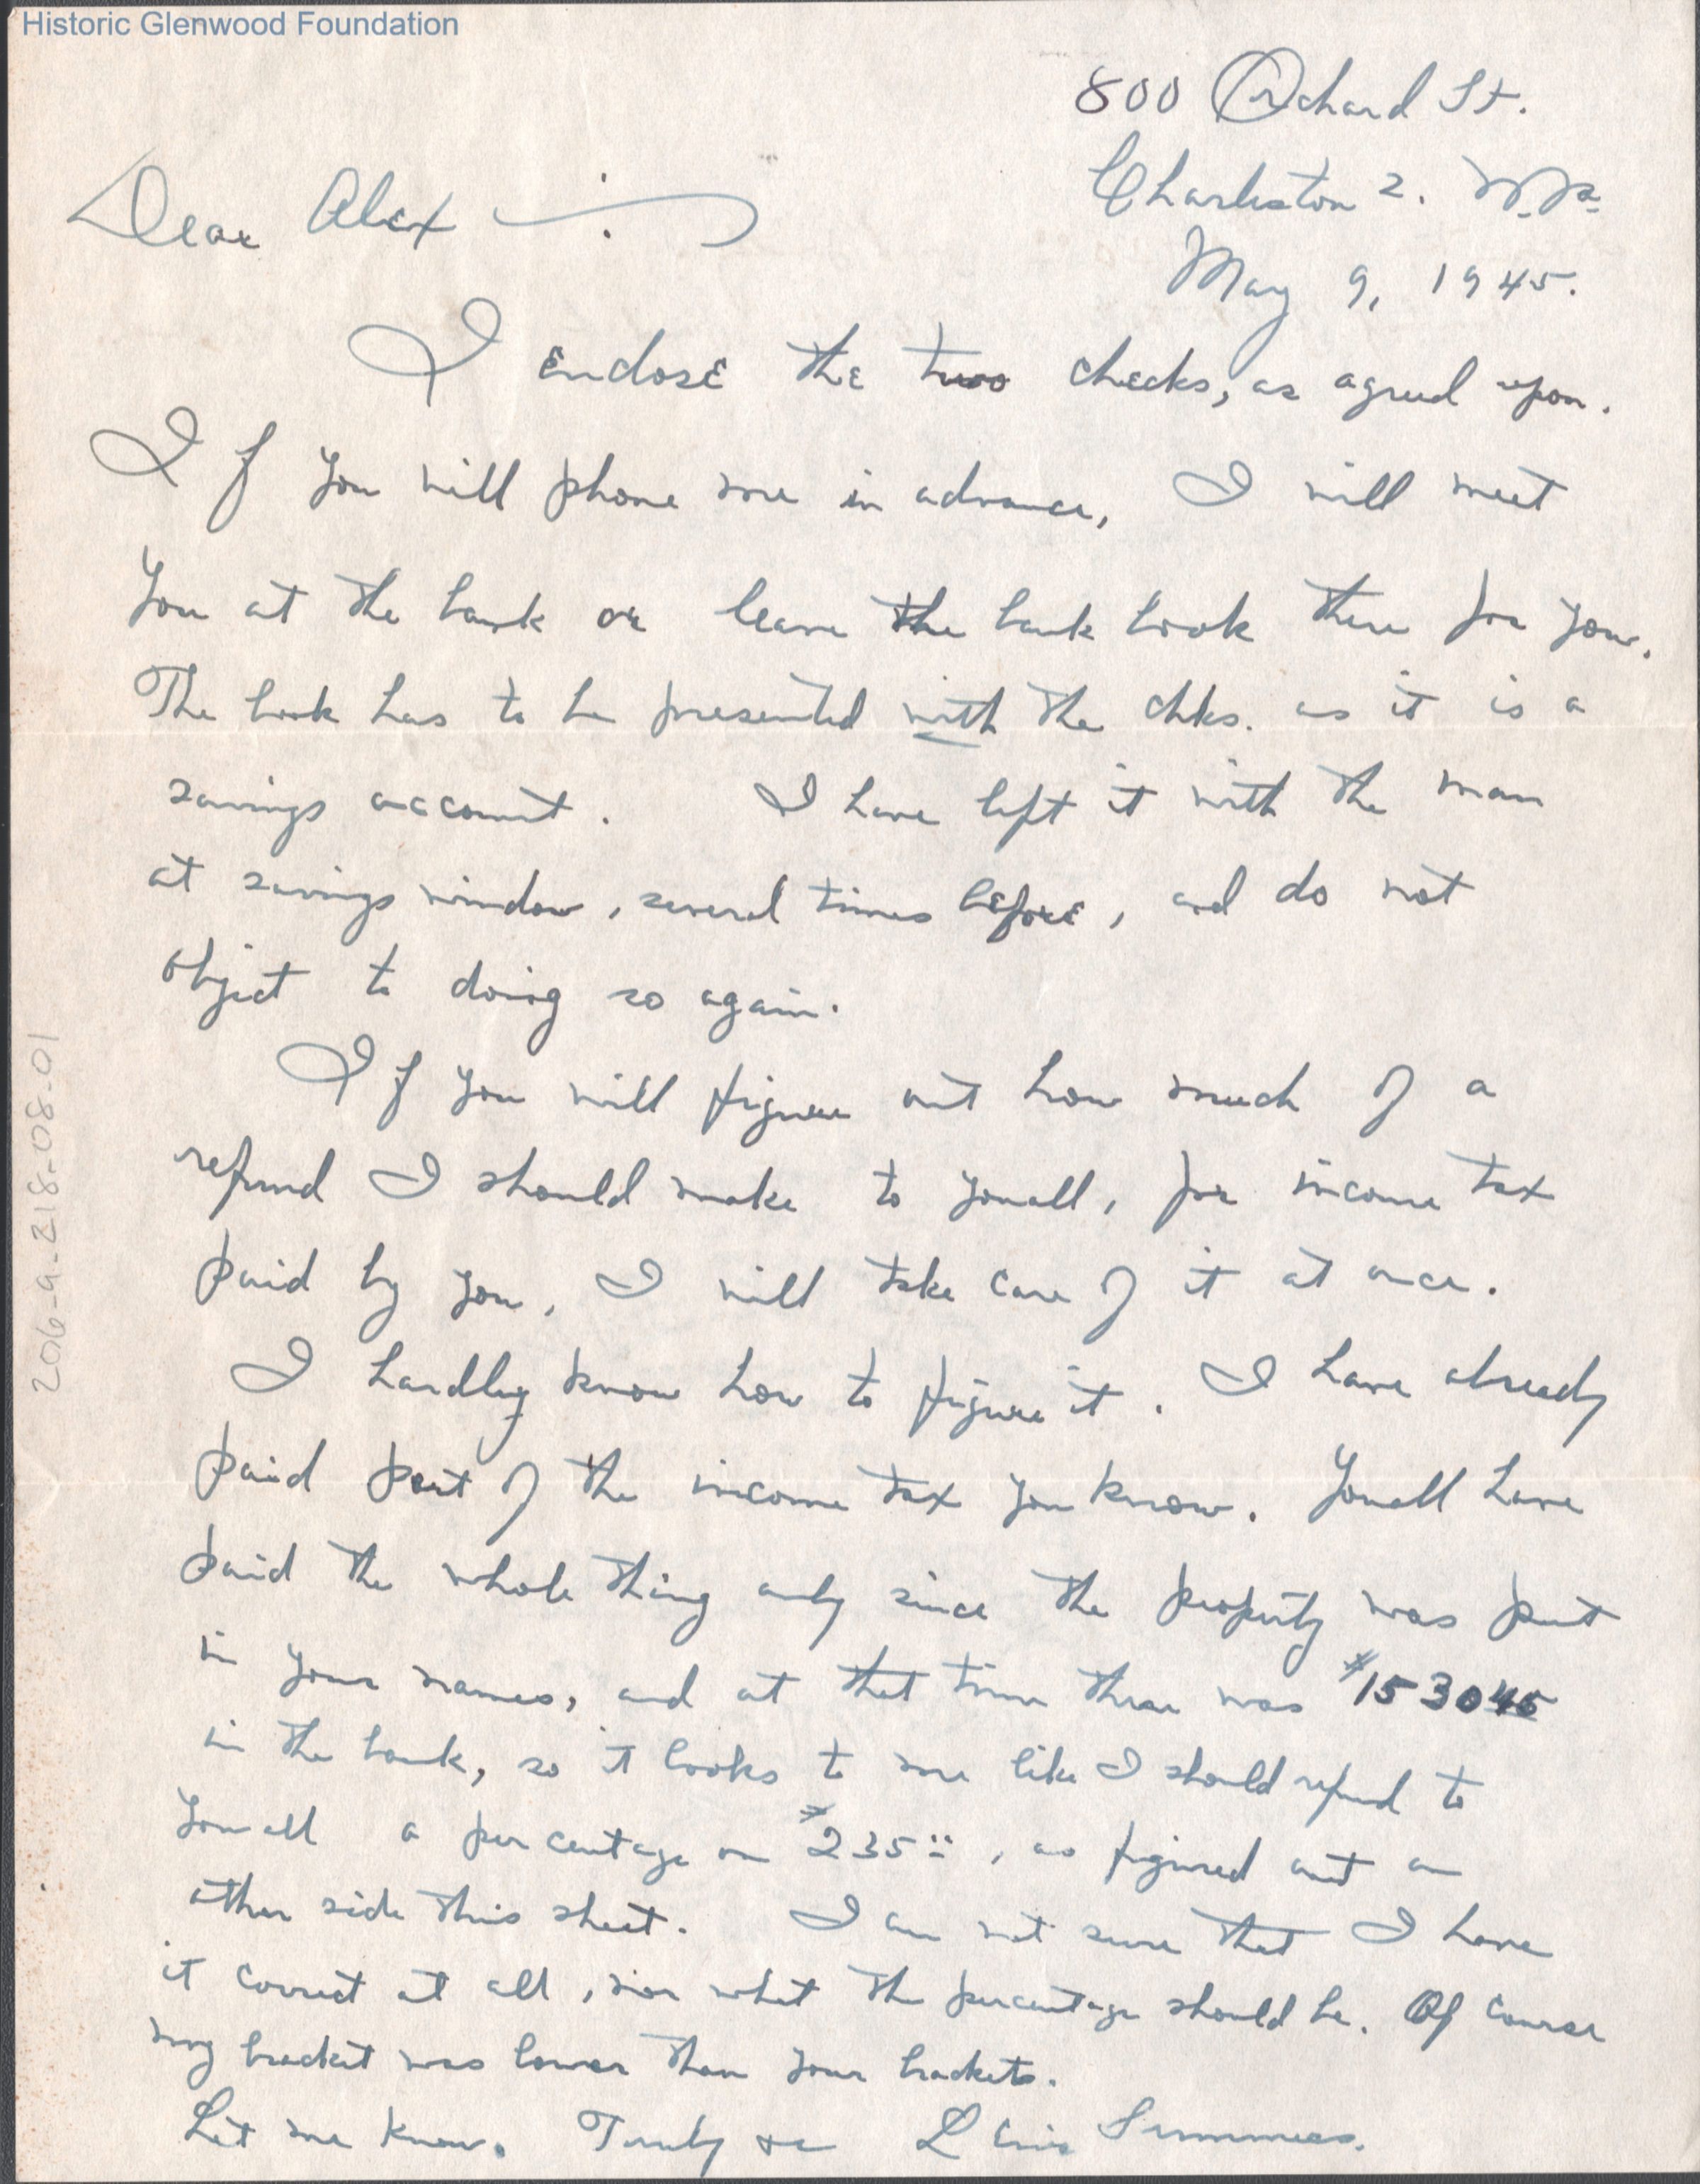 Historic Glenwood Foundation
800 Orchard St.
Charleston 2. W.Va.
May 9, 1945.
Dear Alex
I enclose the two checks, as agreed upon.
If you will phone me in advance, I will meet
you at the bank or leave the bank book there for you.
The book has to be presented with the chks. as it is a
savings account. I have left it with the man
at savings window, several times before, and do not
object to doing so again.
If you will figure out how much of a
refund I should make to youall, for income tax
paid by you, I will take care of it at once.
I hardly know how to figure it. I have already
paid part of the income tax you know. Youall have
paid the whole thing only since the property was put
in your names, and at that time there was $153045
in the bank, so it looks to me like I should refund to
youall a percentage on $235, as figured out on
other side this sheet. I am not sure that I have
it correct at all, nor what the percentage should be. Of course
my bracket was lower than your brackets.
Let me know. Truly &c Summers.
206-9-218-08-01